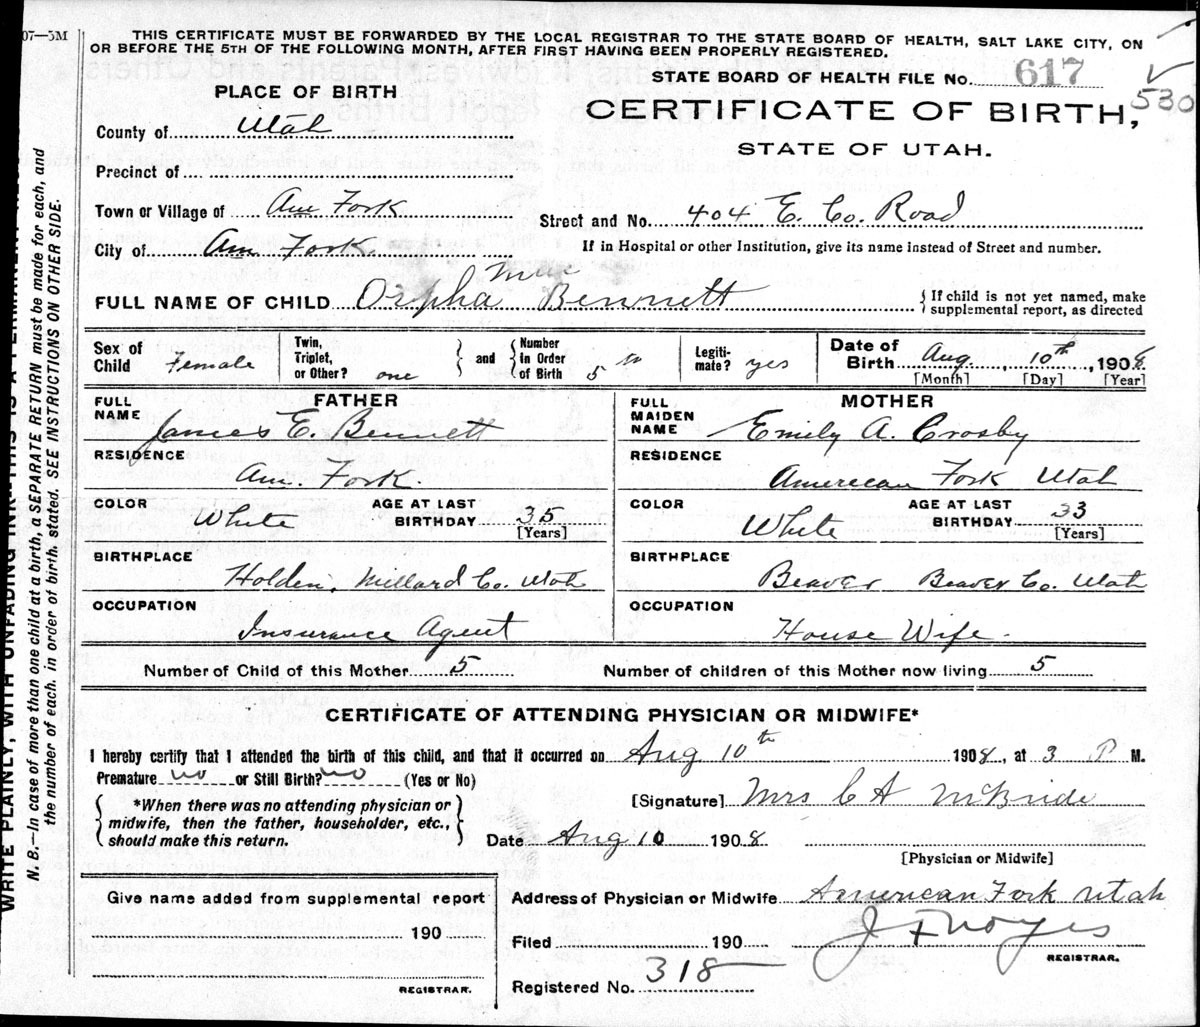 07—5M
THIS CERTIFICATE MUST BE FORWARDED BY THE LOCAL REGISTRAR TO THE STATE BOARD OF HEALTH, SALT LAKE CITY, ON
OR BEFORE THE 5TH OF THE FOLLOWING MONTH, AFTER FIRST HAVING BEEN PROPERLY REGISTERED.
STATE BOARD OF HEALTH FILE No. 617
530
PLACE OF BIRTH
CERTIFICATE OF BIRTH,
STATE OF UTAH.
County of Utah
Precinct of
Town or Village of Am Fork
Street and No. 404 E. Co. Road
City of Am. Fork.
If in Hospital or other Institution, give its name instead of Street and number.
FULL NAME OF CHILD Orpha Bennett
If child is not yet named, make
supplemental report, as directed
Sex of Child Female
Twin, Triplet, or Other? one
and
Number in Order of Birth 5
Legitimate? yes
Date of Birth Aug. 10th, 1908.
[Month] [Day] [Year]
FATHER
FULL NAME James E. Bennett
RESIDENCE Am. Fork.
COLOR White
AGE AT LAST BIRTHDAY 35
[Years]
BIRTHPLACE Holden, Millard Co. Utah
OCCUPATION Insurance Agent
MOTHER
FULL MAIDEN NAME Emily A. Crosby
RESIDENCE American Fork Utah
COLOR White
AGE AT LAST BIRTHDAY 33
[Years]
BIRTHPLACE Beaver Beaver Co. Utah
OCCUPATION House Wife.
Number of Child of this Mother 5
Number of children of this Mother now living 5
CERTIFICATE OF ATTENDING PHYSICIAN OR MIDWIFE*
I hereby certify that I attended the birth of this child, and that it occurred on Aug 10th 1908, at 3 P M.
Premature no or Still Birth? no (Yes or No)
*When there was no attending physician or
midwife, then the father, householder, etc.,
should make this return.
[Signature] Mrs C A McBride
Date Aug 10 1908
[Physician or Midwife]
Give name added from supplemental report
190
REGISTRAR.
Address of Physician or Midwife American Fork Utah
Filed 190 J F Noyes
REGISTRAR.
Registered No. 318
N. B.—In case of more than one child at a birth, a SEPARATE RETURN must be made for each, and
the number of each, in order of birth, stated. SEE INSTRUCTIONS ON OTHER SIDE.
WRITE PLAINLY, WITH UNFADING INK—THIS IS A PERMANENT